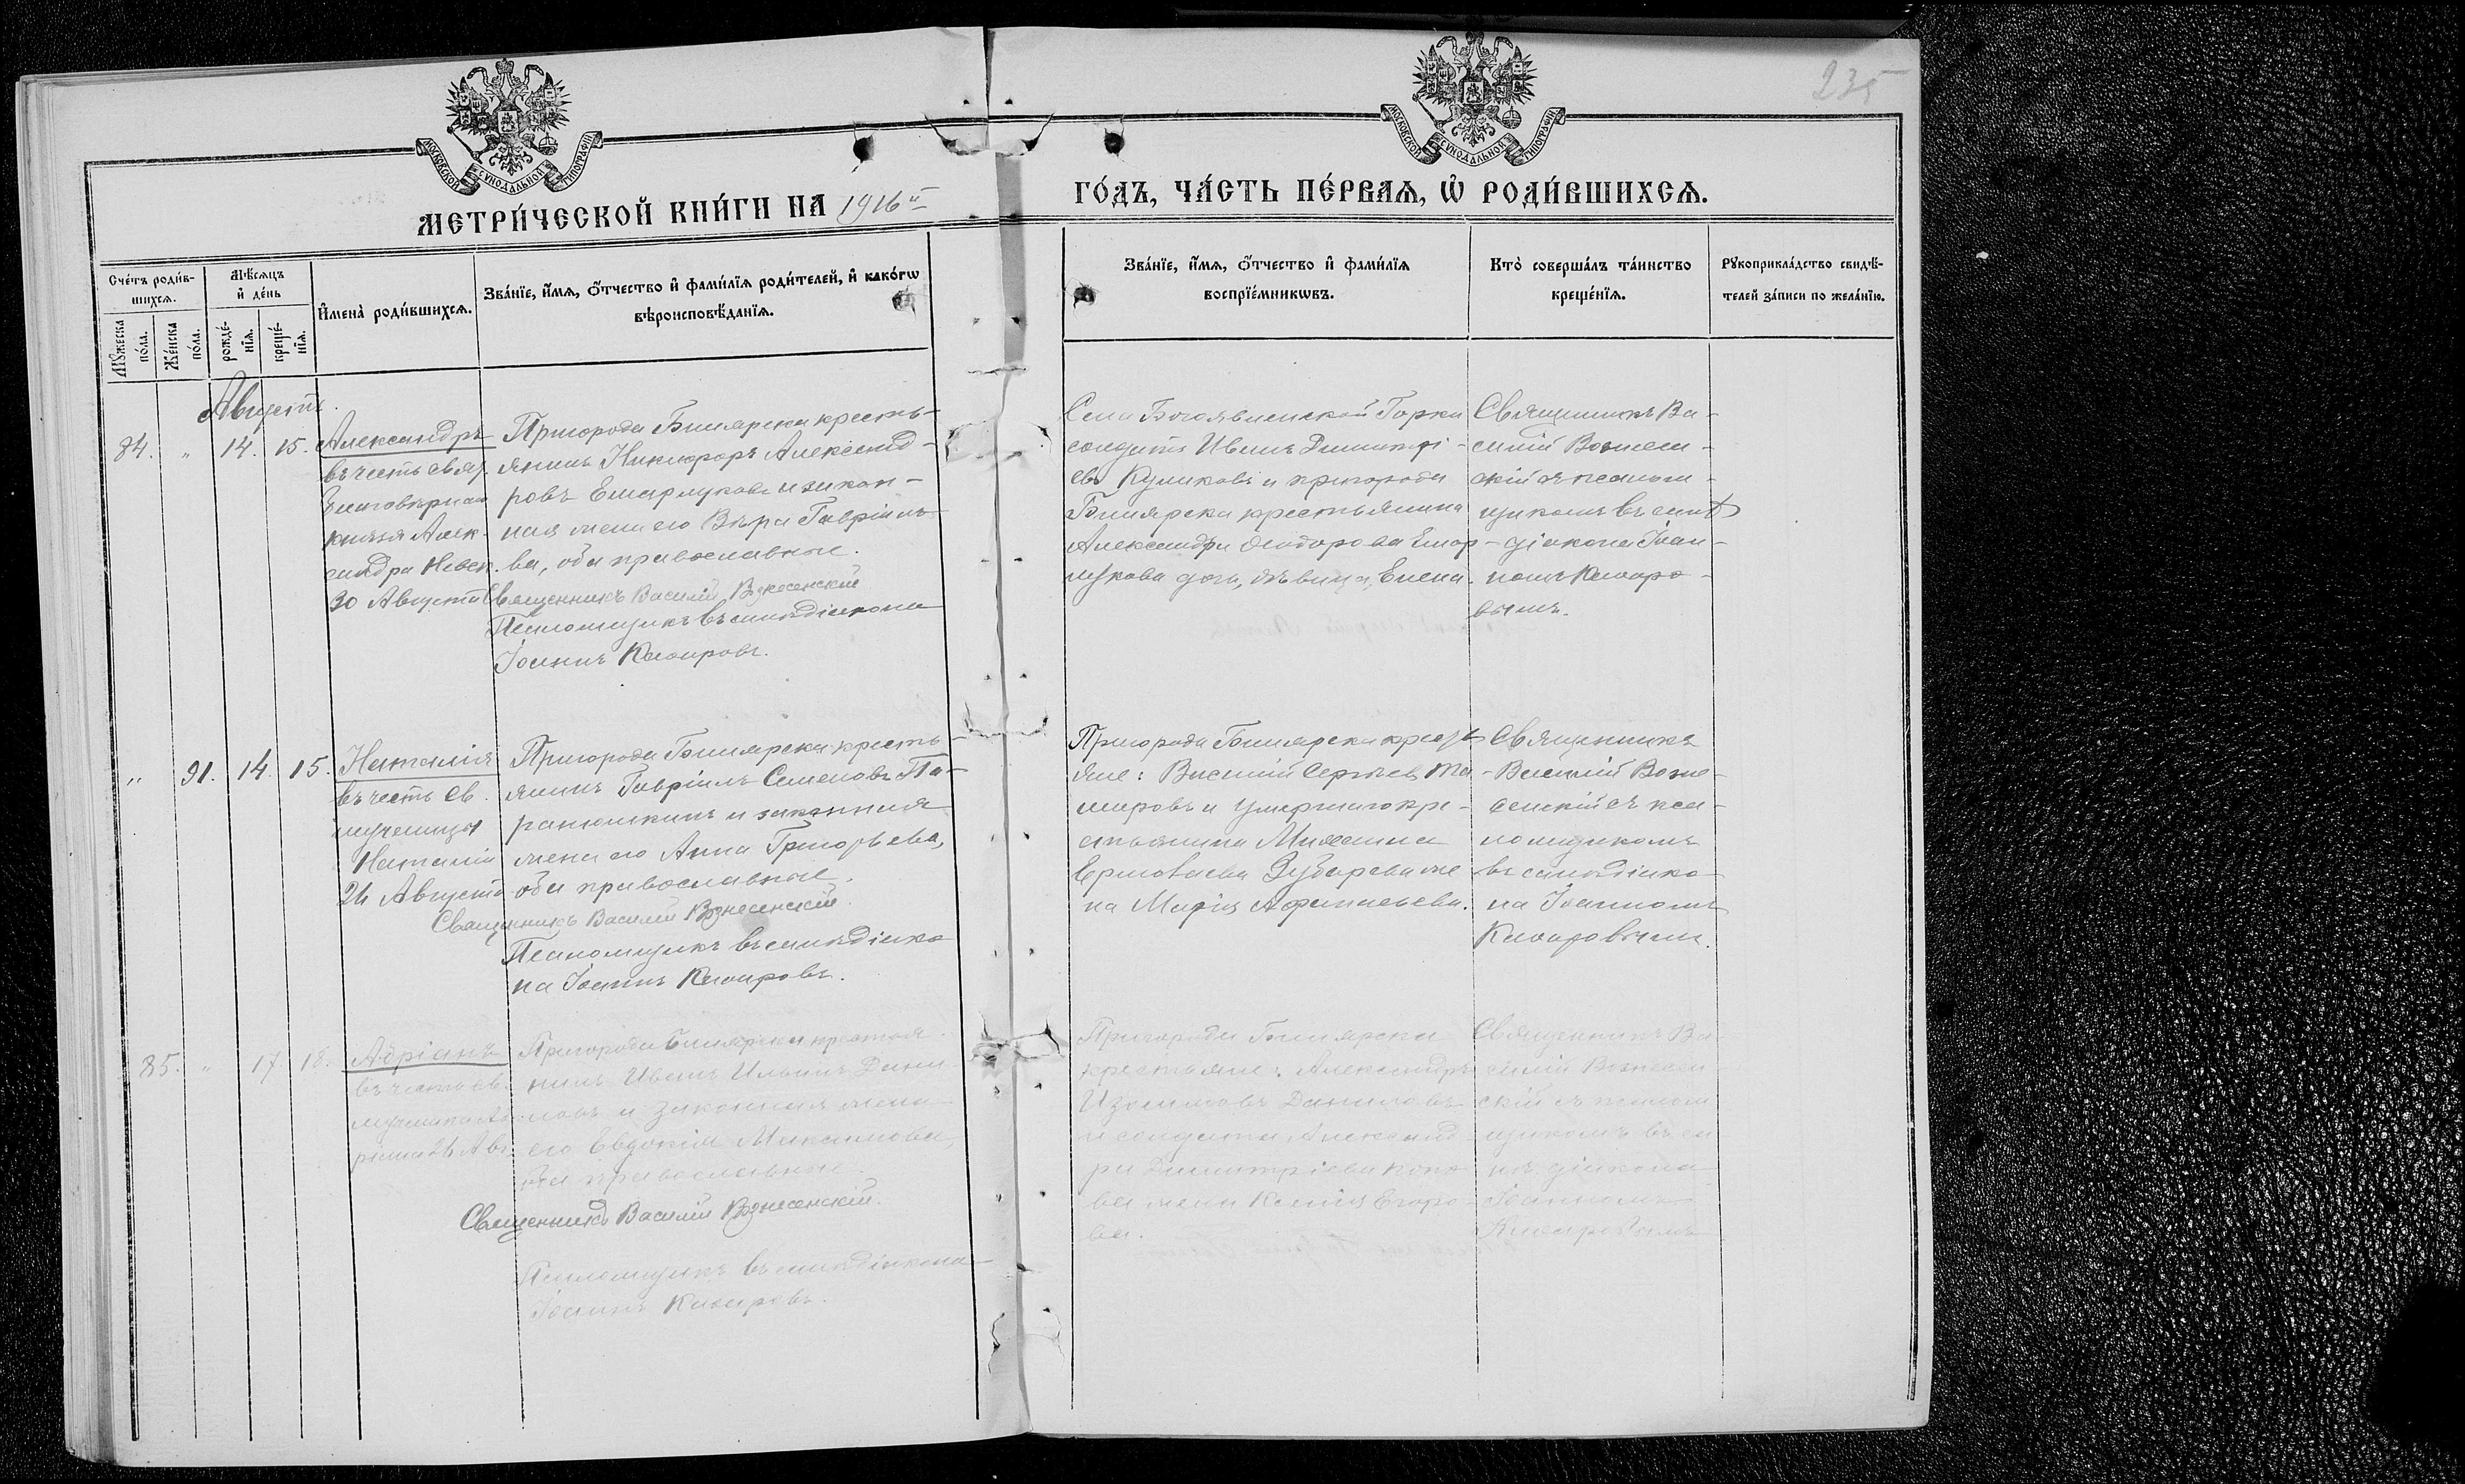 235
МОСКОВСКОЙ СУНОДАЛЬНОЙ ТИПОГРАФІИ
МОСКОВСКОЙ СУНОДАЛЬНОЙ ТИПОГРАФІИ
МЕТРИ́ЧЕСКОЙ КНИ́ГИ НА 1916й
ГО́ДЪ, ЧА́СТЬ ПЕ́РВАѦ, Ѡ҆ РОДИ́ВШИХСѦ.
Сче́тъ роди́в-
шихсѧ.
Мꙋ́жеска по́ла.
Же́нска по́ла.
Мѣ́сѧцъ
и҆ де́нь
рожде́-
нїѧ.
креще́-
нїѧ.
И҆мена̀ роди́вшихсѧ.
Зва́нїе, и҆́мѧ, ѻ҆́тчество и҆ фами́лїѧ роди́телей, и҆ како́гѡ
вѣроисповѣ́данїѧ.
Зва́нїе, и҆́мѧ, ѻ҆́тчество и҆ фами́лїѧ
воспрїе́мникѡвъ.
Кто̀ соверша́лъ та́инство
креще́нїѧ.
Рꙋкоприкла́дство свидѣ́-
телей за́писи по жела́нїю.
Августъ.
84. " 14. 15.
Александръ
въ честь свят
Благовѣрнаго
князя Алек-
сандра Невск.
30 Августа
Пригорода Билярска кресть-
янинъ Никифоръ Александ-
ровъ Емарлуковъ и закон-
ная жена его Вѣра Гавріило-
ва, оба православные.
Священникъ Василій Вознесенскій
Псаломщикъ въ санѣ діакона
Іоаннъ Комаровъ.
Села Богоявленской Горки
солдатъ Иванъ Димитрі-
евъ Куликовъ и пригорода
Билярска крестьянина
Александра Ѳеодорова Емар-
лукова дочь, дѣвица, Елена.
Священникъ Ва-
силій Вознесен-
скій съ псалом-
щикомъ въ санѣ
діакона Іоан-
номъ Комаро-
вымъ.
" 91. 14. 15.
Наталія
въ честь св.
мученицы
Наталіи
26 Августа
Пригорода Билярска кресть-
янинъ Гавріилъ Семеновъ Па-
ранюшкинъ и законная
жена его Анна Григорьева,
оба православные.
Священникъ Василій Вознесенскій.
Псаломщикъ въ санѣ діако
на Іоаннъ Комаровъ.
Пригорода Билярска кресть
яне: Василій Сергѣевъ
и умершаго кре-
стьянина
Зубарева же
на Марія Аѳанасьева.
Священникъ
Василій Возне-
сенскій съ пса-
ломщикомъ
въ санѣ діако
на Іоанномъ
Комаровымъ.
85. " 17. 18.
Адріанъ
въ честь св.
мученика Ад-
ріана 26 Авг.
Пригорода Билярска крестья
нинъ Иванъ Ильинъ Дани
ловъ и законная жена
его Евдокія Максимова,
оба православные.
Священникъ Василій Вознесенскій.
Псаломщикъ въ санѣ діакона
Іоаннъ Комаровъ.
Пригорода Билярска
крестьяне: Александръ
Даниловъ
и солдата Александ
ра Димитріева
ва жена Ксенія Егоро-
ва.
Священникъ Ва-
силій Вознесен-
скій съ псалом
щикомъ въ са-
нѣ діакона
Іоанномъ
Комаровымъ